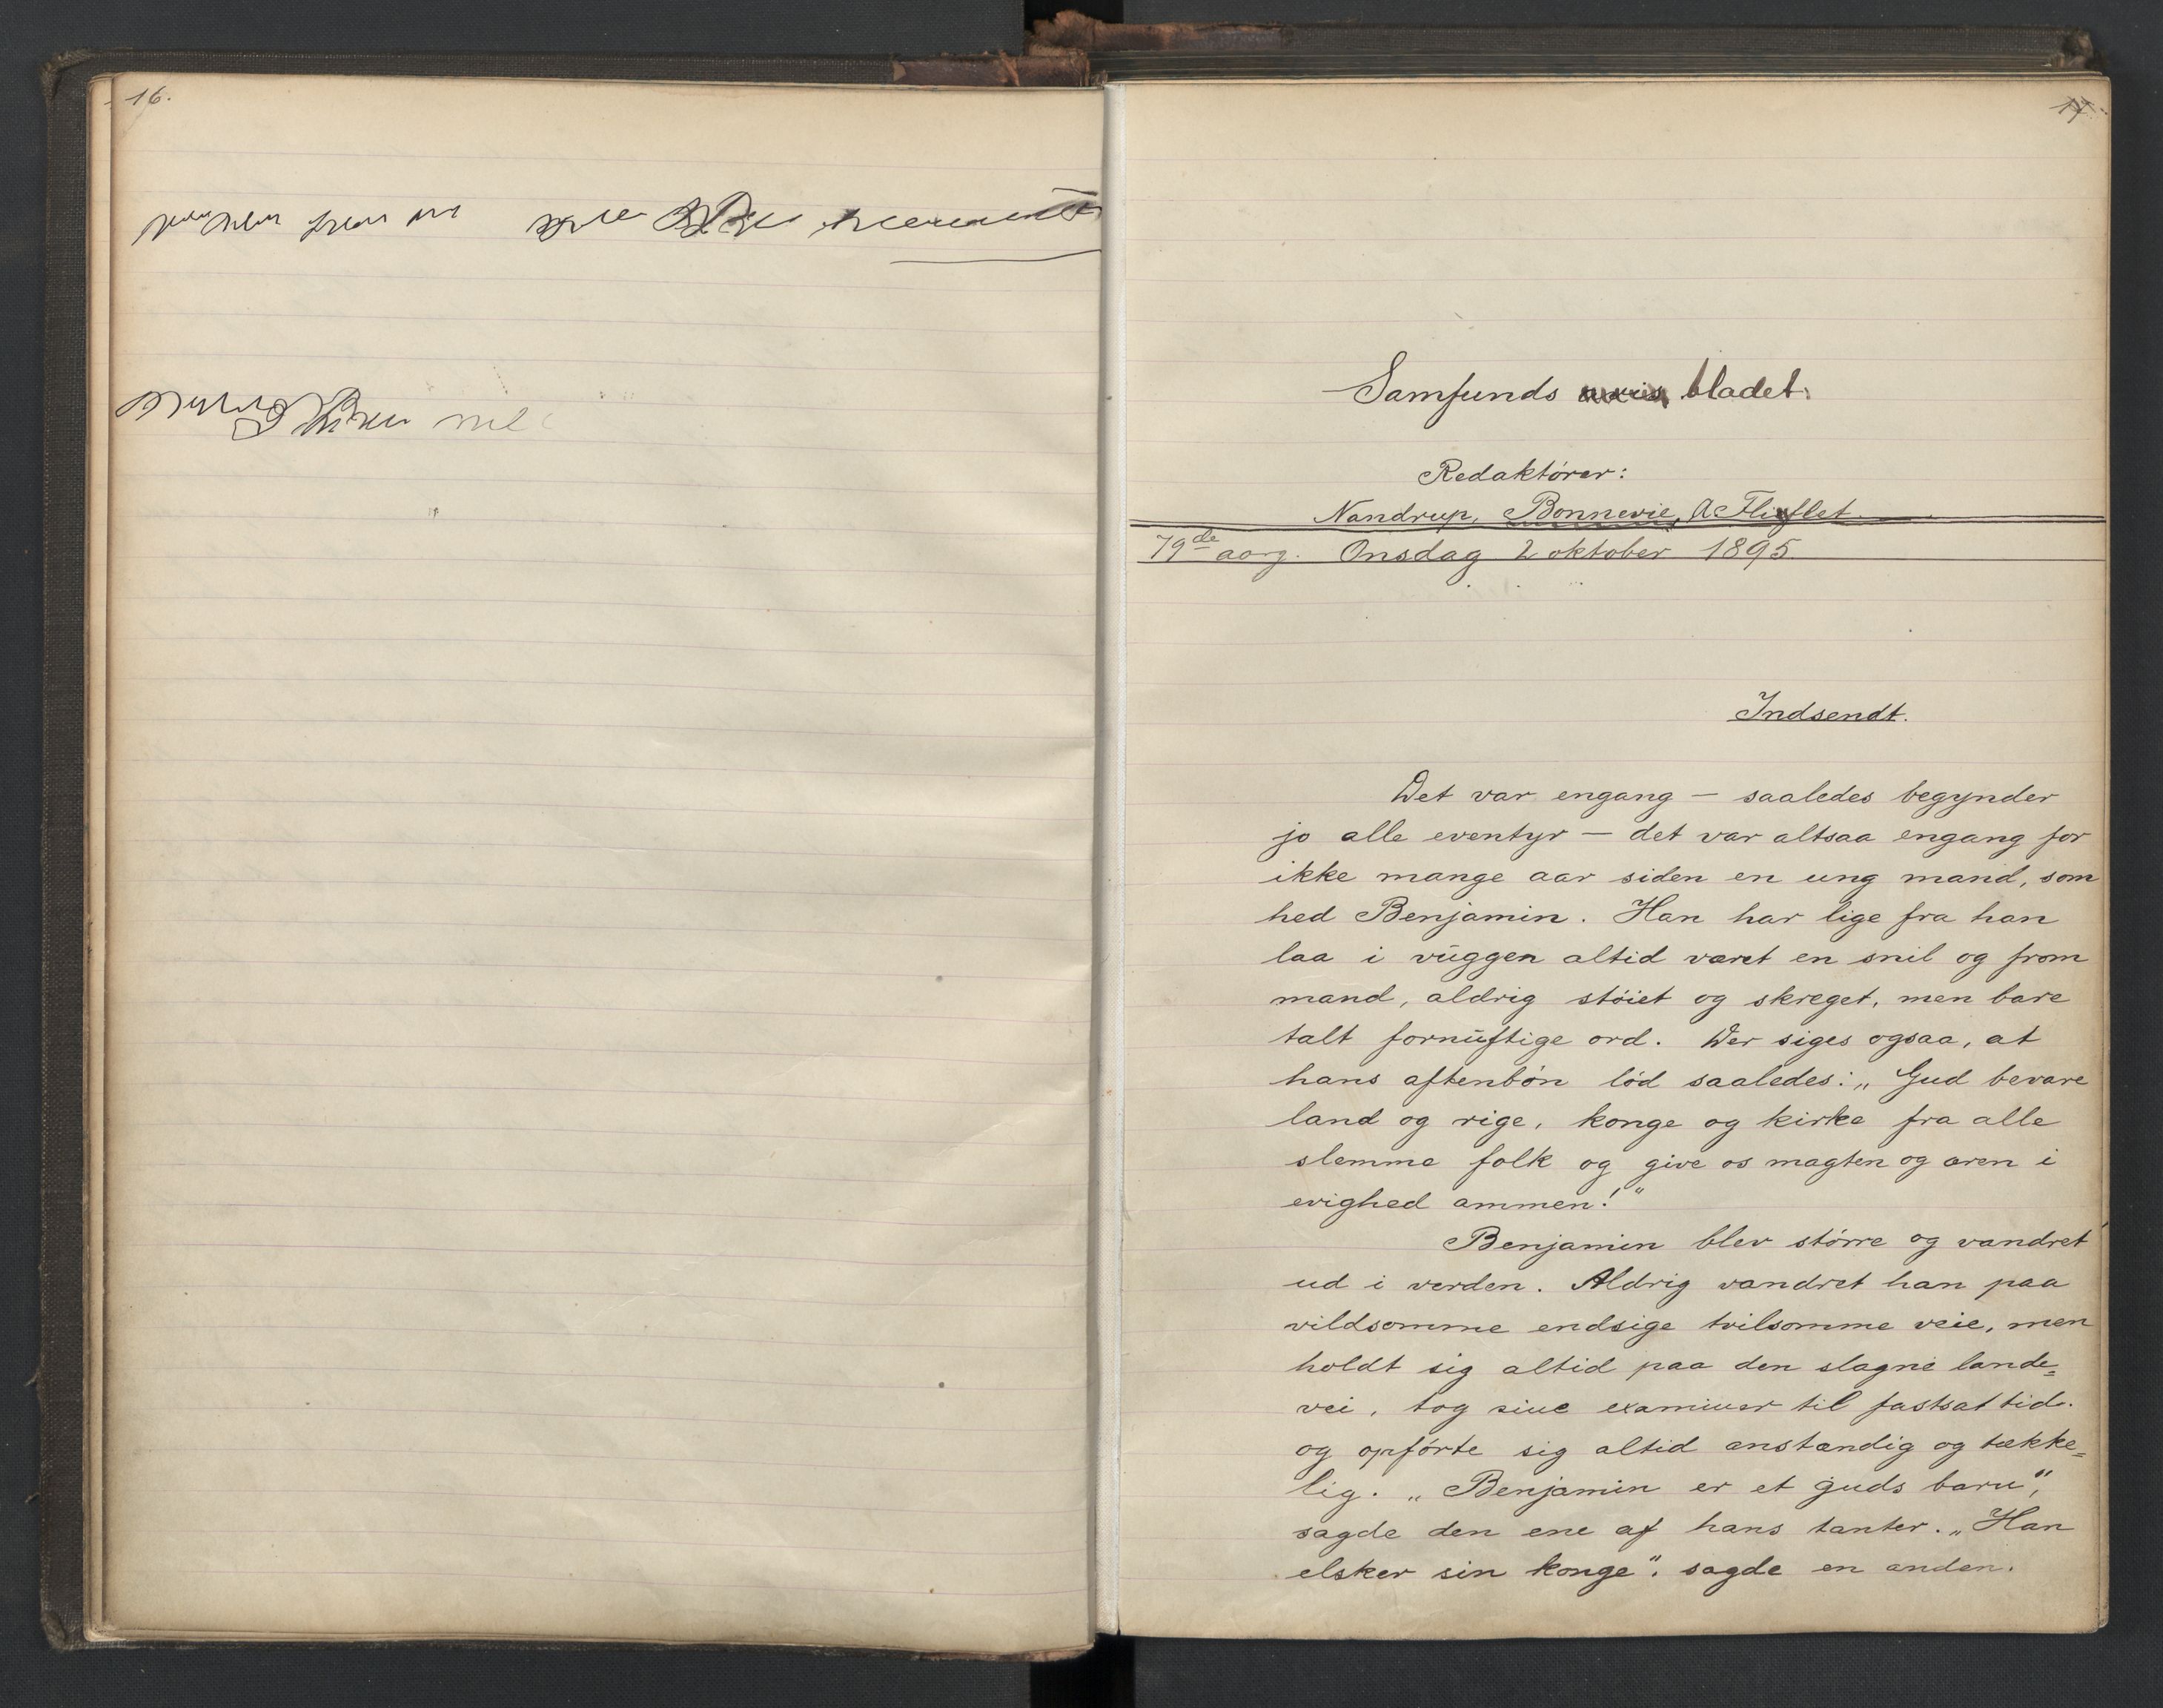 16.
17.
Samfunds bladet.
Redaktörer:
Nandrup, Bonnevie, A
79de aarg. Onsdag 2 oktober 1895.
Indsendt.
Det var engang — saaledes begynder
jo alle eventyr — det var altsaa engang for
ikke mange aar siden en ung mand, som
hed Benjamin. Han har lige fra han
laa i vuggen altid været en snil og from
mand, aldrig stöiet og skreget, men bare
talt fornuftige ord. Der siges ogsaa, at
hans aftenbön löd saaledes: „Gud bevare
land og rige, konge og kirke fra alle
slemme folk og give os magten og æren i
evighed ammen!"
Benjamin blev större og vandret
ud i verden. Aldrig vandret han paa
vildsomme endsige tvilsomme veie, men
holdt sig altid paa den slagne lande=
vei, tog sine examiner til fastsat tid.
og opförte sig altid anstændig og tække=
lig. „Benjamin er et guds barn",
sagde den ene af hans tanter. „Han
elsker sin konge", sagde en anden.